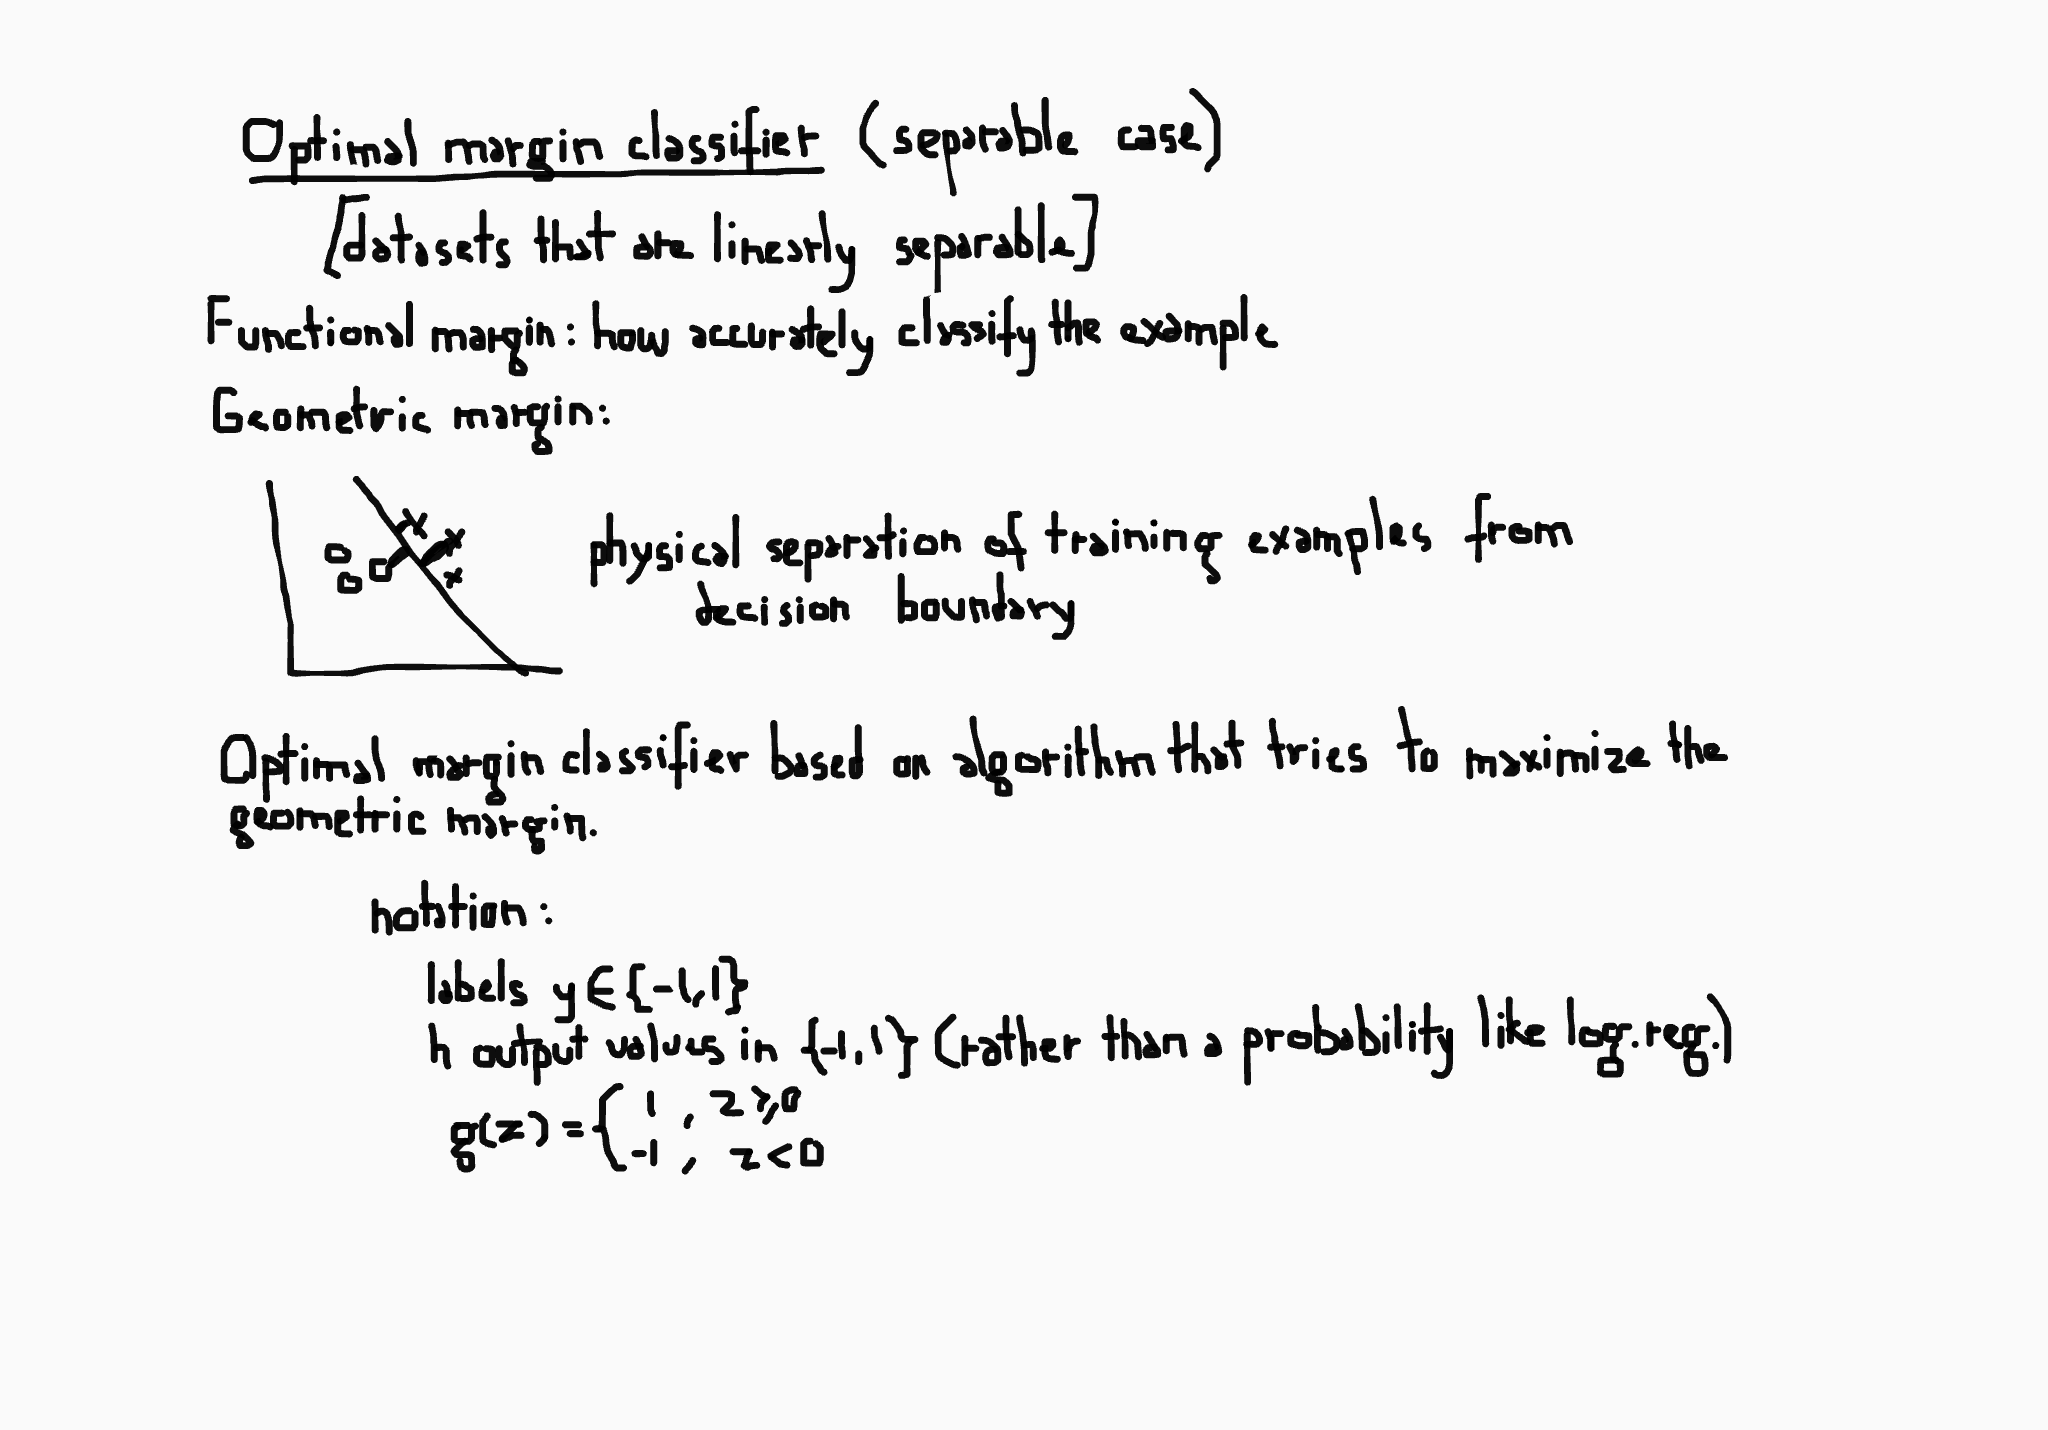 Optimal margin classifier (separable case)
[datasets that are linearly separable]
Functional margin: how accurately classify the example
Geometric margin:
physical separation of training examples from
decision boundary
Optimal margin classifier based on algorithm that tries to maximize the
geometric margin.
notation:
labels y ∈ {-1, 1}
h output values in {-1, 1} (rather than a probability like log. reg.)
g(z) = { 1 , z ≥ 0
-1 , z < 0